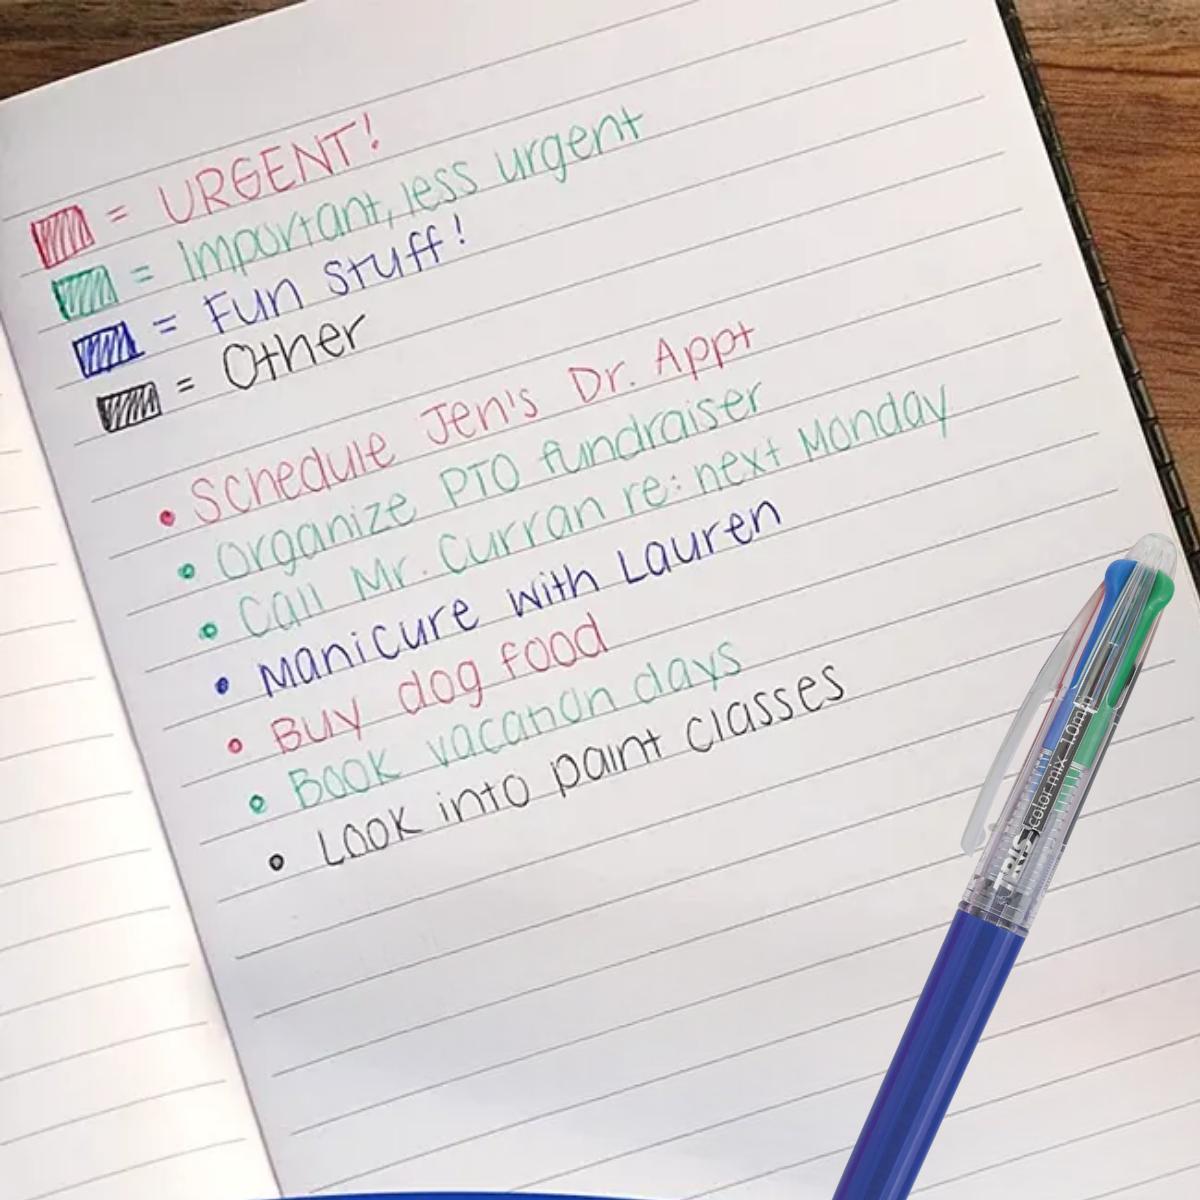 = URGENT!
= Important, less urgent
= Fun stuff!
= Other
• Schedule Jen's Dr. Appt
• Organize PTO fundraiser
• Call Mr. Curran re: next Monday
• Manicure with Lauren
• Buy dog food
• Book vacation days
• Look into paint classes
TRIS color mix 1.0mm